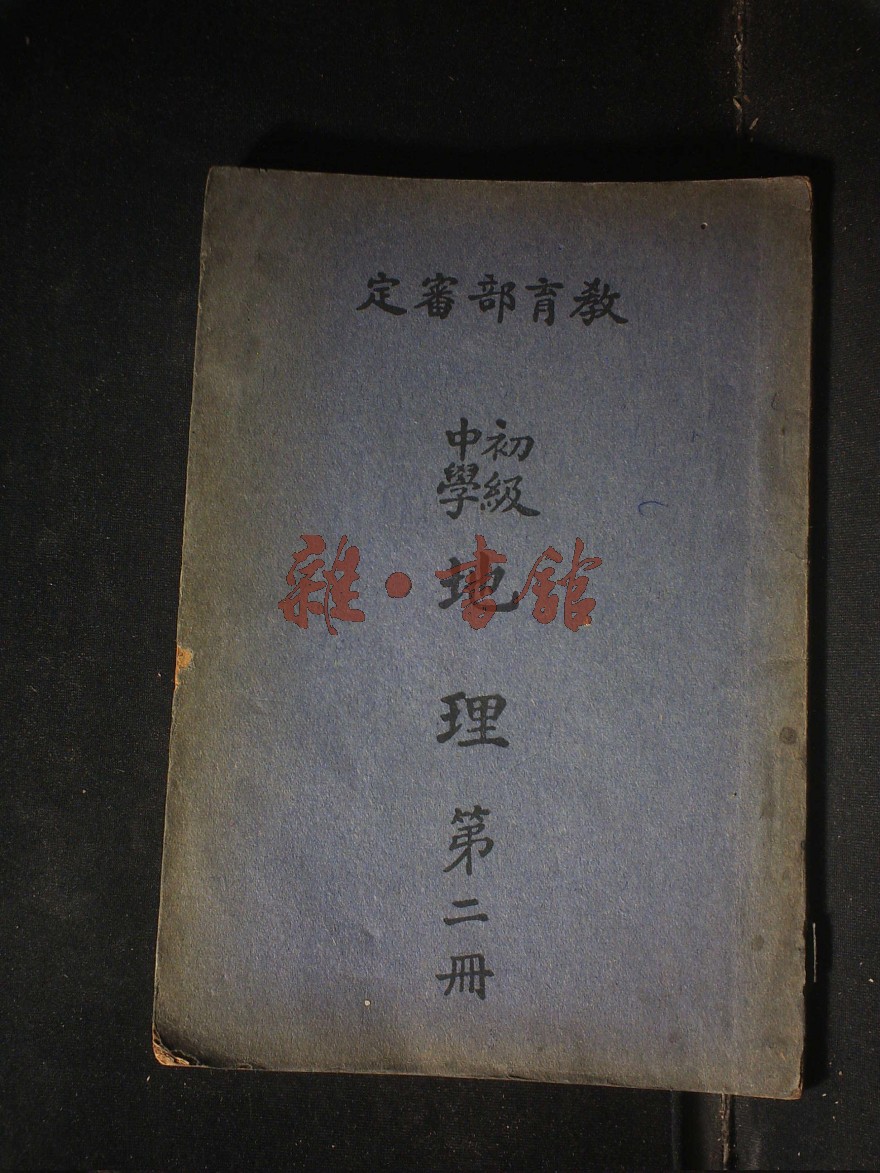 教育部審定
初級中學
地理第二冊
雜·書館